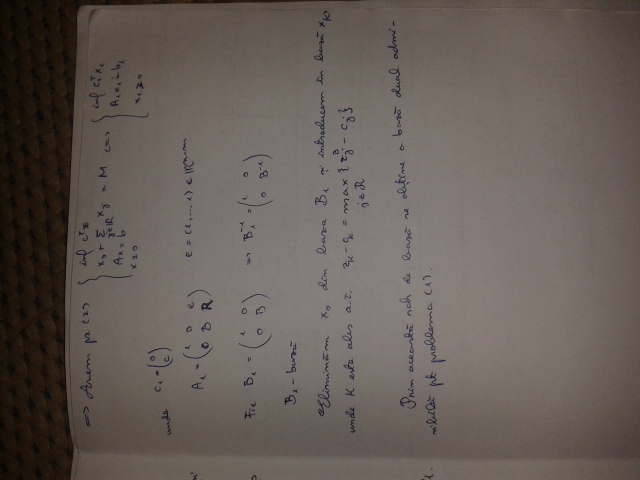 => Avem pr (2) { inf cᵀx
x₀ + Σ_{j∈ℛ} x_j = M
Ax = b
x ≥ 0 (=) { inf c₁ᵀx₁
A₁x₁ = b₁
x₁ ≥ 0
unde c₁ = (0 c)
A₁ = (1 0 e
0 B R) e = (1, ... 1) ∈ ℝⁿ⁻ᵐ
Fie B₁ = (1 0
0 B) => B₁⁻¹ = (1 0
0 B⁻¹)
B₁ - bază
Eliminăm x₀ din baza B₁ și introducem în bază x_K,
unde K este ales a.î. z_k - c_k = max {z_j^B - c_j}
j∈ℛ
Prin această sch de bază se obține o bază dual admi-
sibilă pt problema (1).